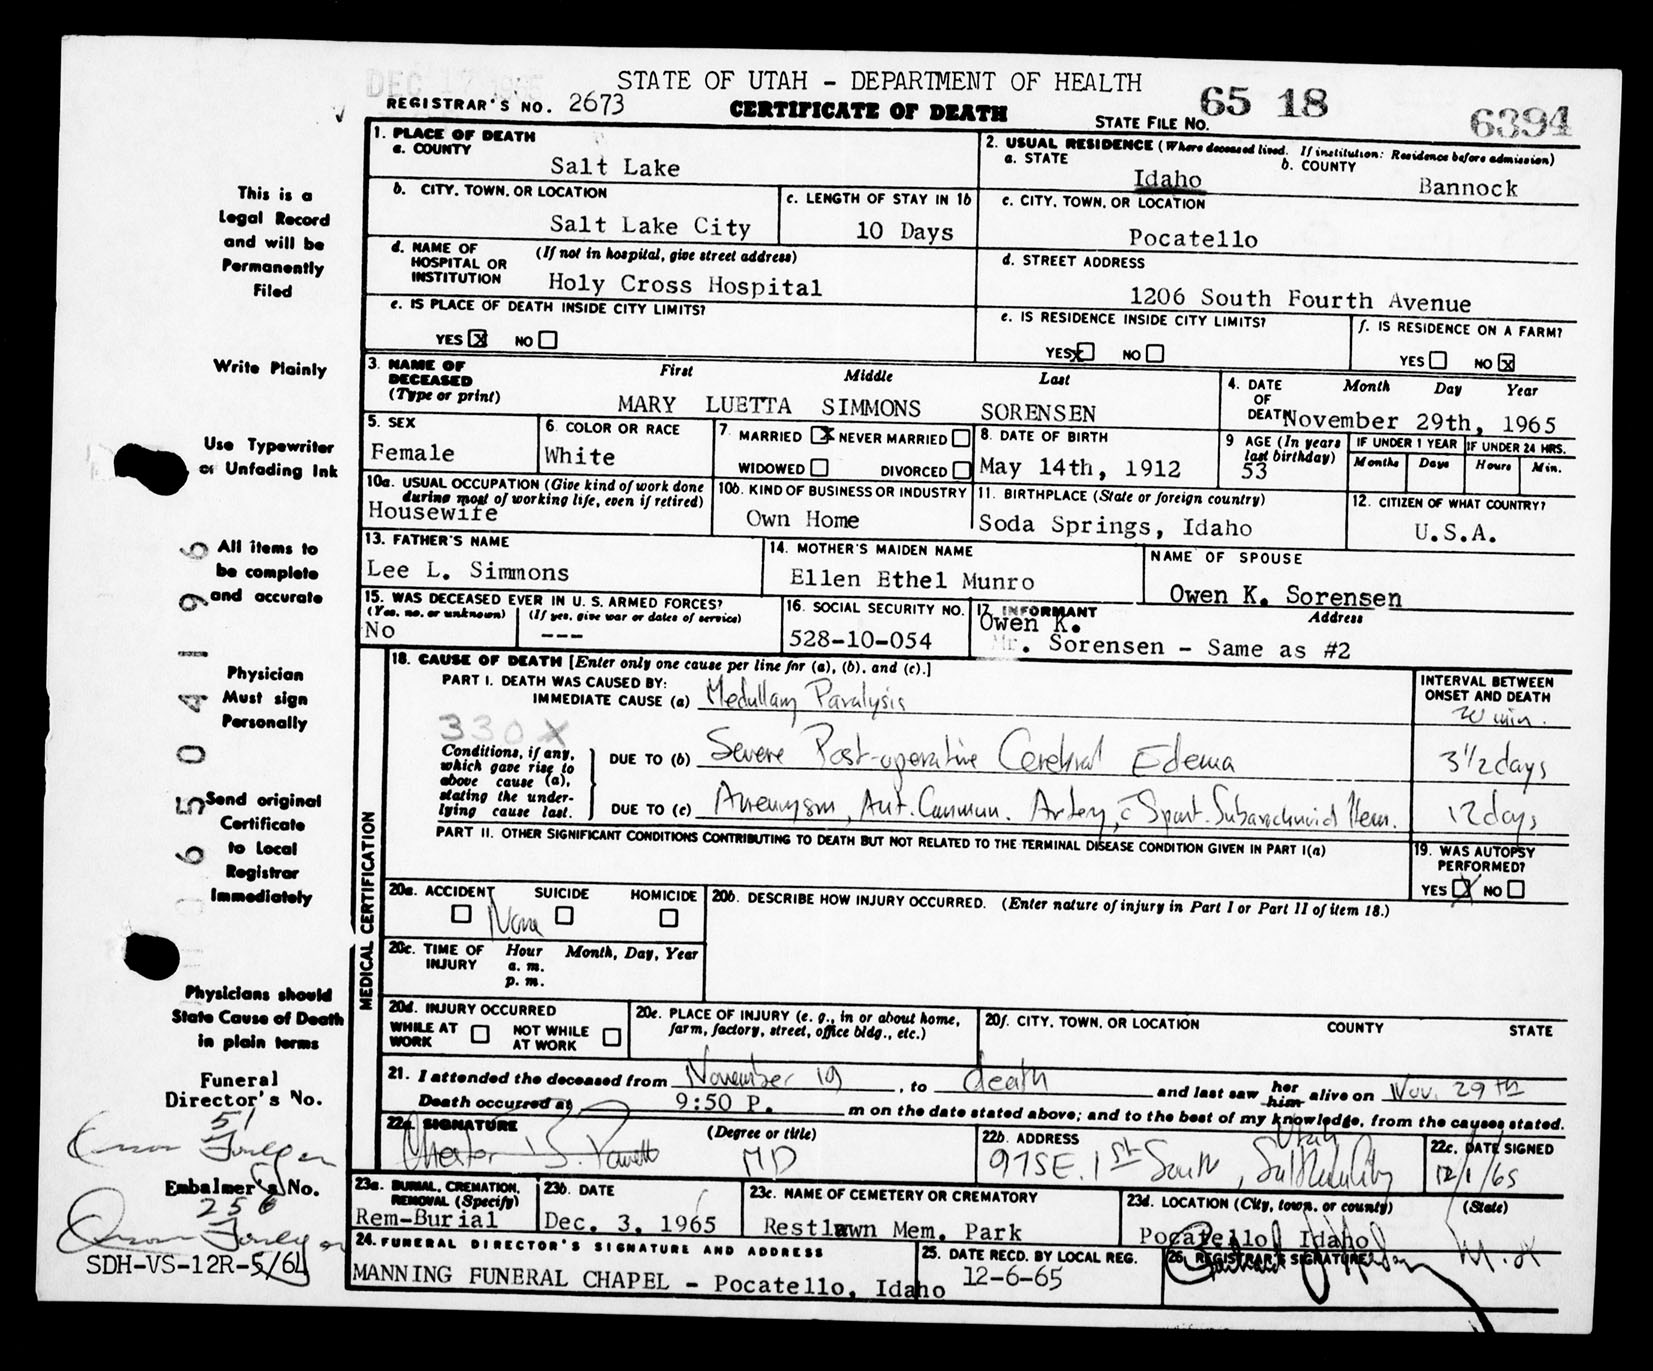 DEC 17 1965
STATE OF UTAH - DEPARTMENT OF HEALTH
REGISTRAR'S NO. 2673
CERTIFICATE OF DEATH
STATE FILE NO. 65 18 6394
This is a
Legal Record
and will be
Permanently
Filed
Write Plainly
Use Typewriter
or Unfading Ink
All items to
be complete
and accurate
Physician
Must sign
Personally
Send original
Certificate
to Local
Registrar
Immediately
Physicians should
State Cause of Death
in plain terms
Funeral
Director's No.
51
Embalmer's No.
256
SDH-VS-12R-5/64
1. PLACE OF DEATH
a. COUNTY
Salt Lake
b. CITY, TOWN, OR LOCATION
Salt Lake City
c. LENGTH OF STAY IN 1b
10 Days
d. NAME OF HOSPITAL OR INSTITUTION (If not in hospital, give street address)
Holy Cross Hospital
e. IS PLACE OF DEATH INSIDE CITY LIMITS?
YES X NO
2. USUAL RESIDENCE (Where deceased lived. If institution: Residence before admission)
a. STATE
Idaho
b. COUNTY
Bannock
c. CITY, TOWN, OR LOCATION
Pocatello
d. STREET ADDRESS
1206 South Fourth Avenue
e. IS RESIDENCE INSIDE CITY LIMITS?
YES X NO
f. IS RESIDENCE ON A FARM?
YES NO X
3. NAME OF DECEASED (Type or print)
First Middle Last
MARY LUETTA SIMMONS SORENSEN
4. DATE OF DEATH
Month Day Year
November 29th, 1965
5. SEX
Female
6. COLOR OR RACE
White
7. MARRIED X NEVER MARRIED
WIDOWED DIVORCED
8. DATE OF BIRTH
May 14th, 1912
9 AGE (In years last birthday)
53
IF UNDER 1 YEAR
Months Days
IF UNDER 24 HRS.
Hours Min.
10a. USUAL OCCUPATION (Give kind of work done during most of working life, even if retired)
Housewife
10b. KIND OF BUSINESS OR INDUSTRY
Own Home
11. BIRTHPLACE (State or foreign country)
Soda Springs, Idaho
12. CITIZEN OF WHAT COUNTRY?
U.S.A.
13. FATHER'S NAME
Lee L. Simmons
14. MOTHER'S MAIDEN NAME
Ellen Ethel Munro
NAME OF SPOUSE
Owen K. Sorensen
15. WAS DECEASED EVER IN U. S. ARMED FORCES?
(Yes, no, or unknown) (If yes, give war or dates of service)
No ---
16. SOCIAL SECURITY NO.
528-10-054
17. INFORMANT Address
Owen K.
Mr. Sorensen - Same as #2
18. CAUSE OF DEATH [Enter only one cause per line for (a), (b), and (c).]
PART I. DEATH WAS CAUSED BY:
IMMEDIATE CAUSE (a) Medullary Paralysis
330X
Conditions, if any, which gave rise to above cause (a), stating the underlying cause last.
DUE TO (b) Severe Post-operative Cerebral Edema
DUE TO (c) Aneurysm, Ant. Commun. Artery, c Spont. Subarachnoid Hem.
INTERVAL BETWEEN ONSET AND DEATH
20 min.
3 1/2 days
12 days
PART II. OTHER SIGNIFICANT CONDITIONS CONTRIBUTING TO DEATH BUT NOT RELATED TO THE TERMINAL DISEASE CONDITION GIVEN IN PART I(a)
19. WAS AUTOPSY PERFORMED?
YES X NO
20a. ACCIDENT SUICIDE HOMICIDE
None
20b. DESCRIBE HOW INJURY OCCURRED. (Enter nature of injury in Part I or Part II of item 18.)
20c. TIME OF INJURY Hour Month, Day, Year
a. m.
p. m.
20d. INJURY OCCURRED
WHILE AT WORK NOT WHILE AT WORK
20e. PLACE OF INJURY (e. g., in or about home, farm, factory, street, office bldg., etc.)
20f. CITY, TOWN, OR LOCATION COUNTY STATE
MEDICAL CERTIFICATION
21. I attended the deceased from November 19, to death and last saw her him alive on Nov. 29th
Death occurred at 9:50 P. m on the date stated above; and to the best of my knowledge, from the causes stated.
22a. SIGNATURE (Degree or title)
Chester B. Powell MD
22b. ADDRESS
975 E. 1st South, Salt Lake City Utah
22c. DATE SIGNED
12/1/65
23a. BURIAL, CREMATION, REMOVAL (Specify)
Rem-Burial
23b. DATE
Dec. 3, 1965
23c. NAME OF CEMETERY OR CREMATORY
Restlawn Mem. Park
23d. LOCATION (City, town, or county) (State)
Pocatello Idaho
24. FUNERAL DIRECTOR'S SIGNATURE AND ADDRESS
MANNING FUNERAL CHAPEL - Pocatello, Idaho
25. DATE RECD. BY LOCAL REG.
12-6-65
26. REGISTRAR'S SIGNATURE